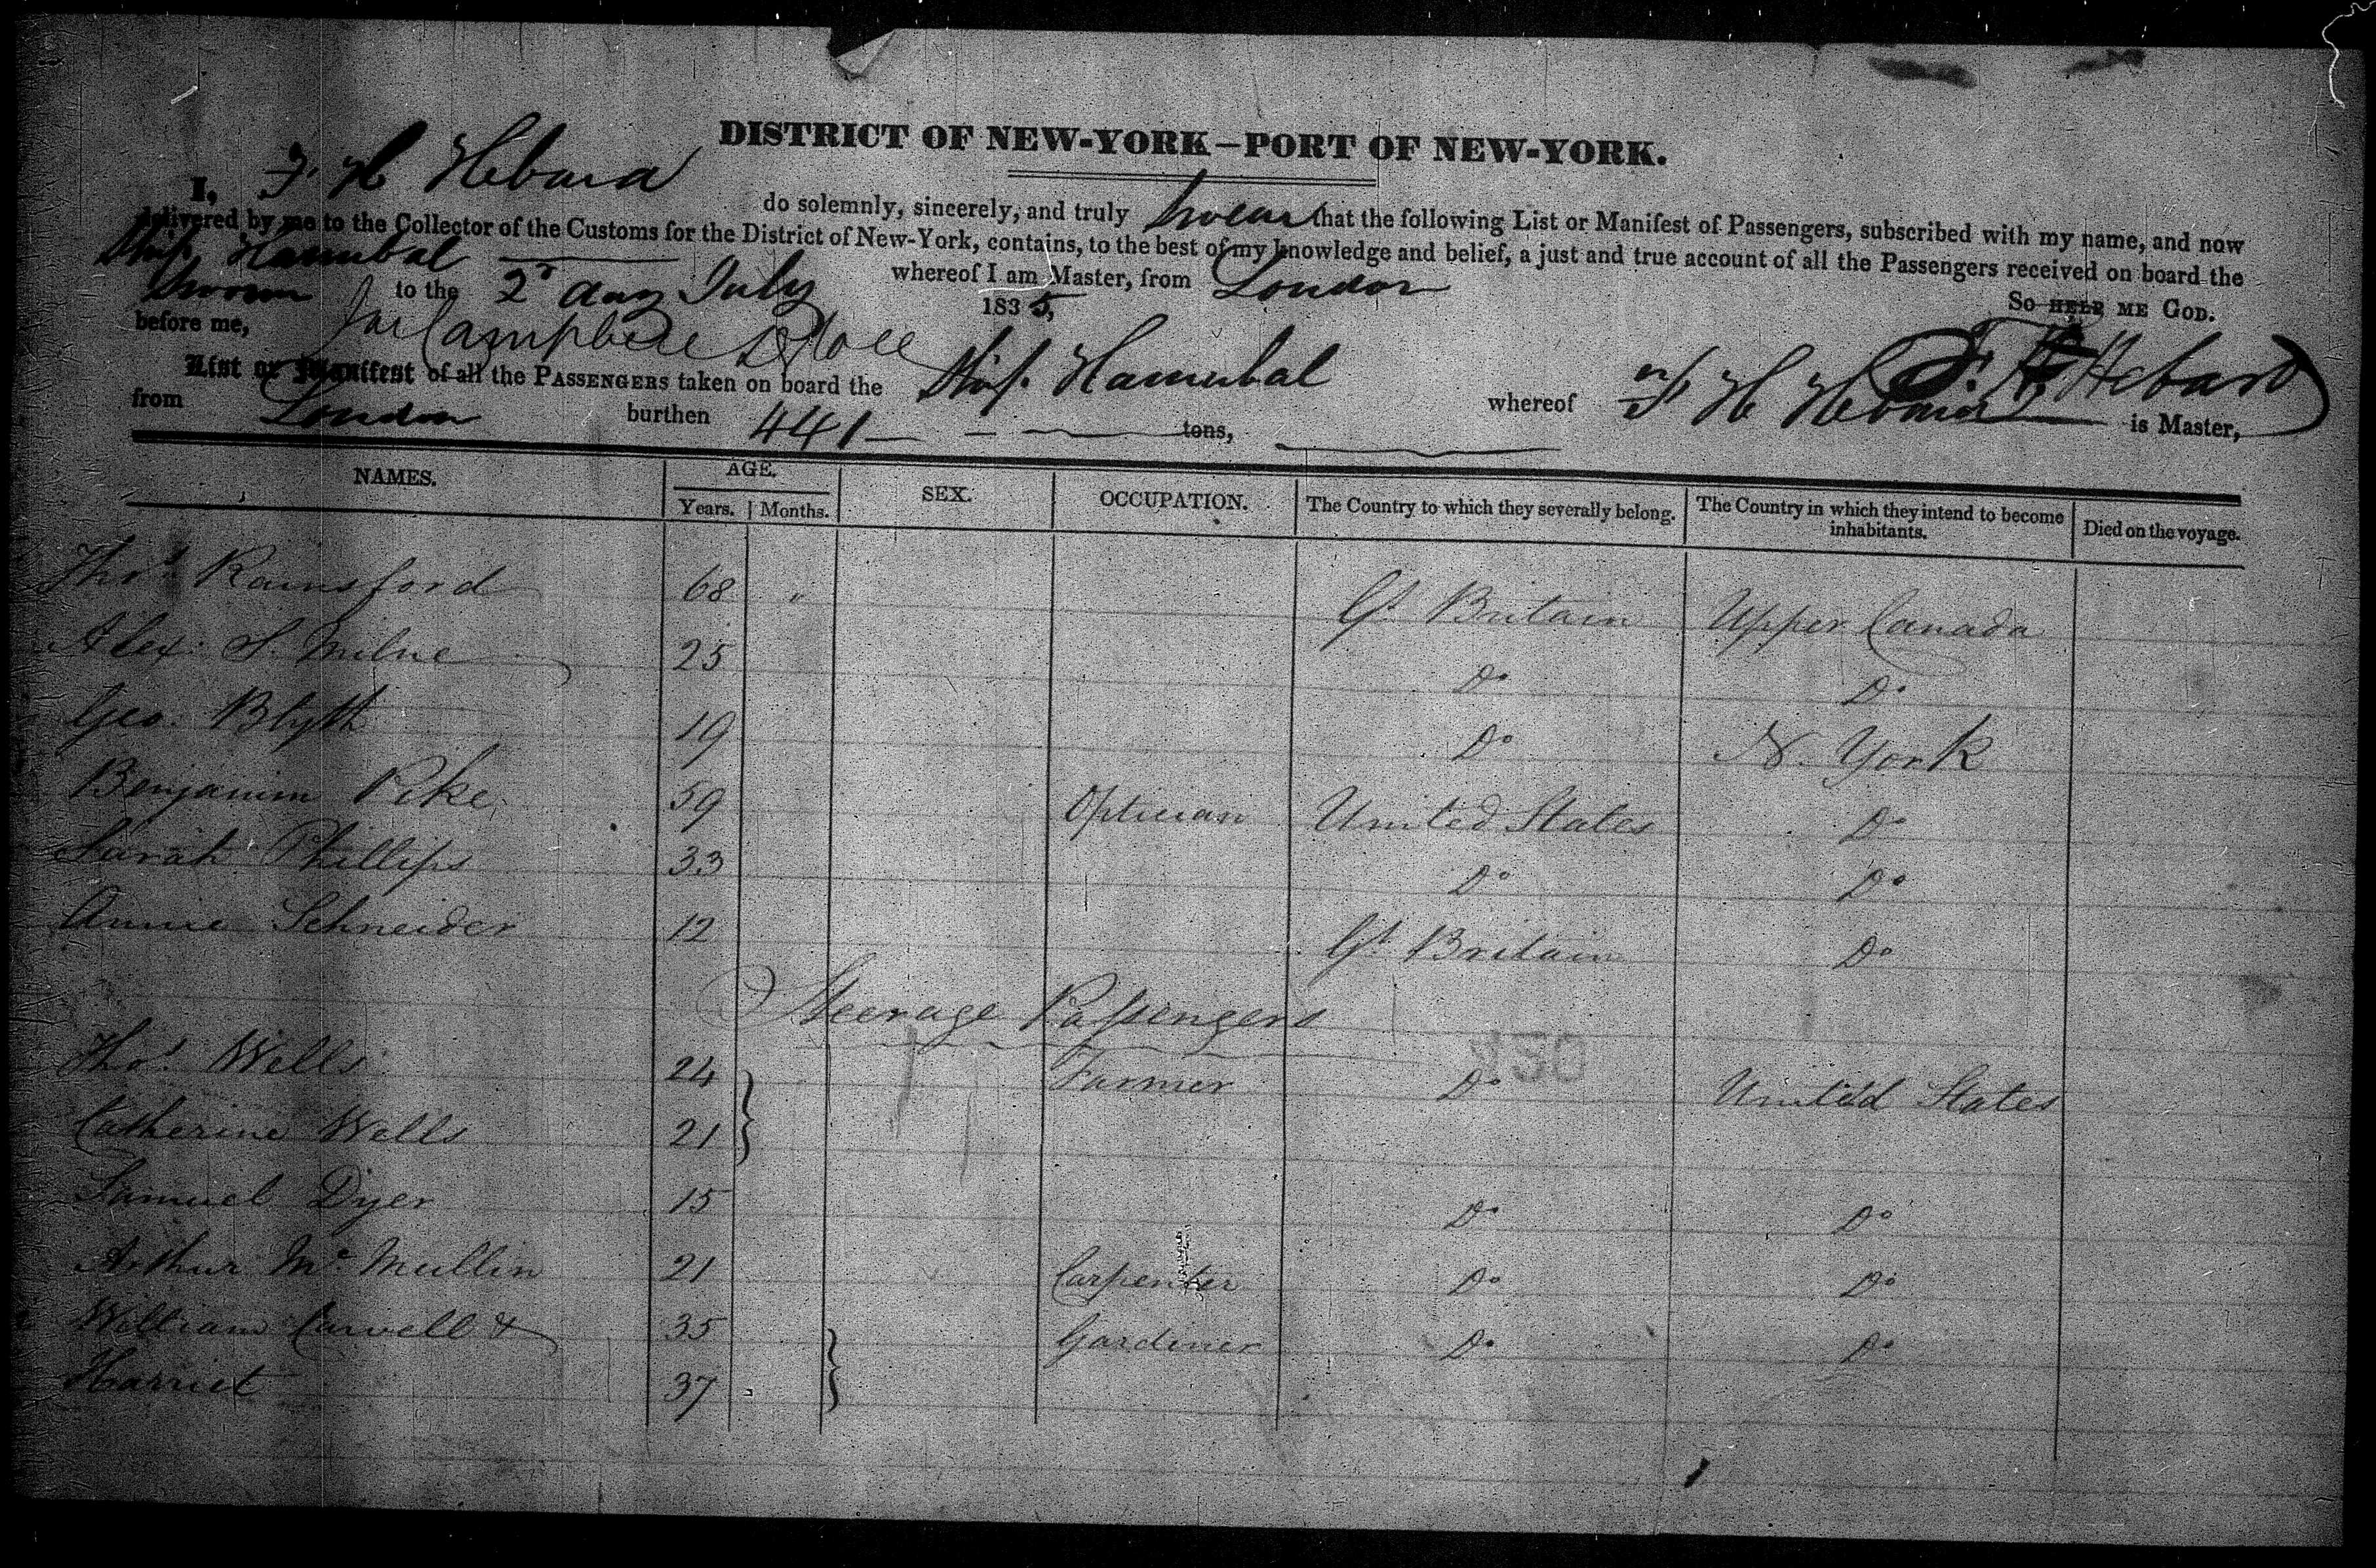 DISTRICT OF NEW-YORK—PORT OF NEW-YORK.
I, F. H Hebard do solemnly, sincerely, and truly swear that the following List or Manifest of Passengers, subscribed with my name, and now
delivered by me to the Collector of the Customs for the District of New-York, contains, to the best of my knowledge and belief, a just and true account of all the Passengers received on board the
Ship Hannibal whereof I am Master, from London
Sworn to the 2d day July 1835, So HELP ME GOD.
before me, F. H Hebard
List or Manifest of all the PASSENGERS taken on board the Ship Hannibal whereof F H Hebard is Master,
from London burthen 441 tons,
NAMES. AGE. SEX. OCCUPATION. The Country to which they severally belong. The Country in which they intend to become inhabitants. Died on the voyage.
Years. Months.
Thos Rainsford 68 " Gt Britain Upper Canada
Alex. S. Milne 25 Do Do
Geo. Blyth 19 Do N. York
Benjamin Pike 59 Optician United States Do
Sarah Phillips 33 Do Do
Annie Schneider 12 Gt Britain Do
Steerage Passengers
Thos Wells 24 Farmer Do United States
Catherine Wells 21
Samuel Dyer 15 Do Do
Arthur Mc Mullin 21 Carpenter Do Do
William Carvell & 35 Gardiner Do Do
Harriet 37